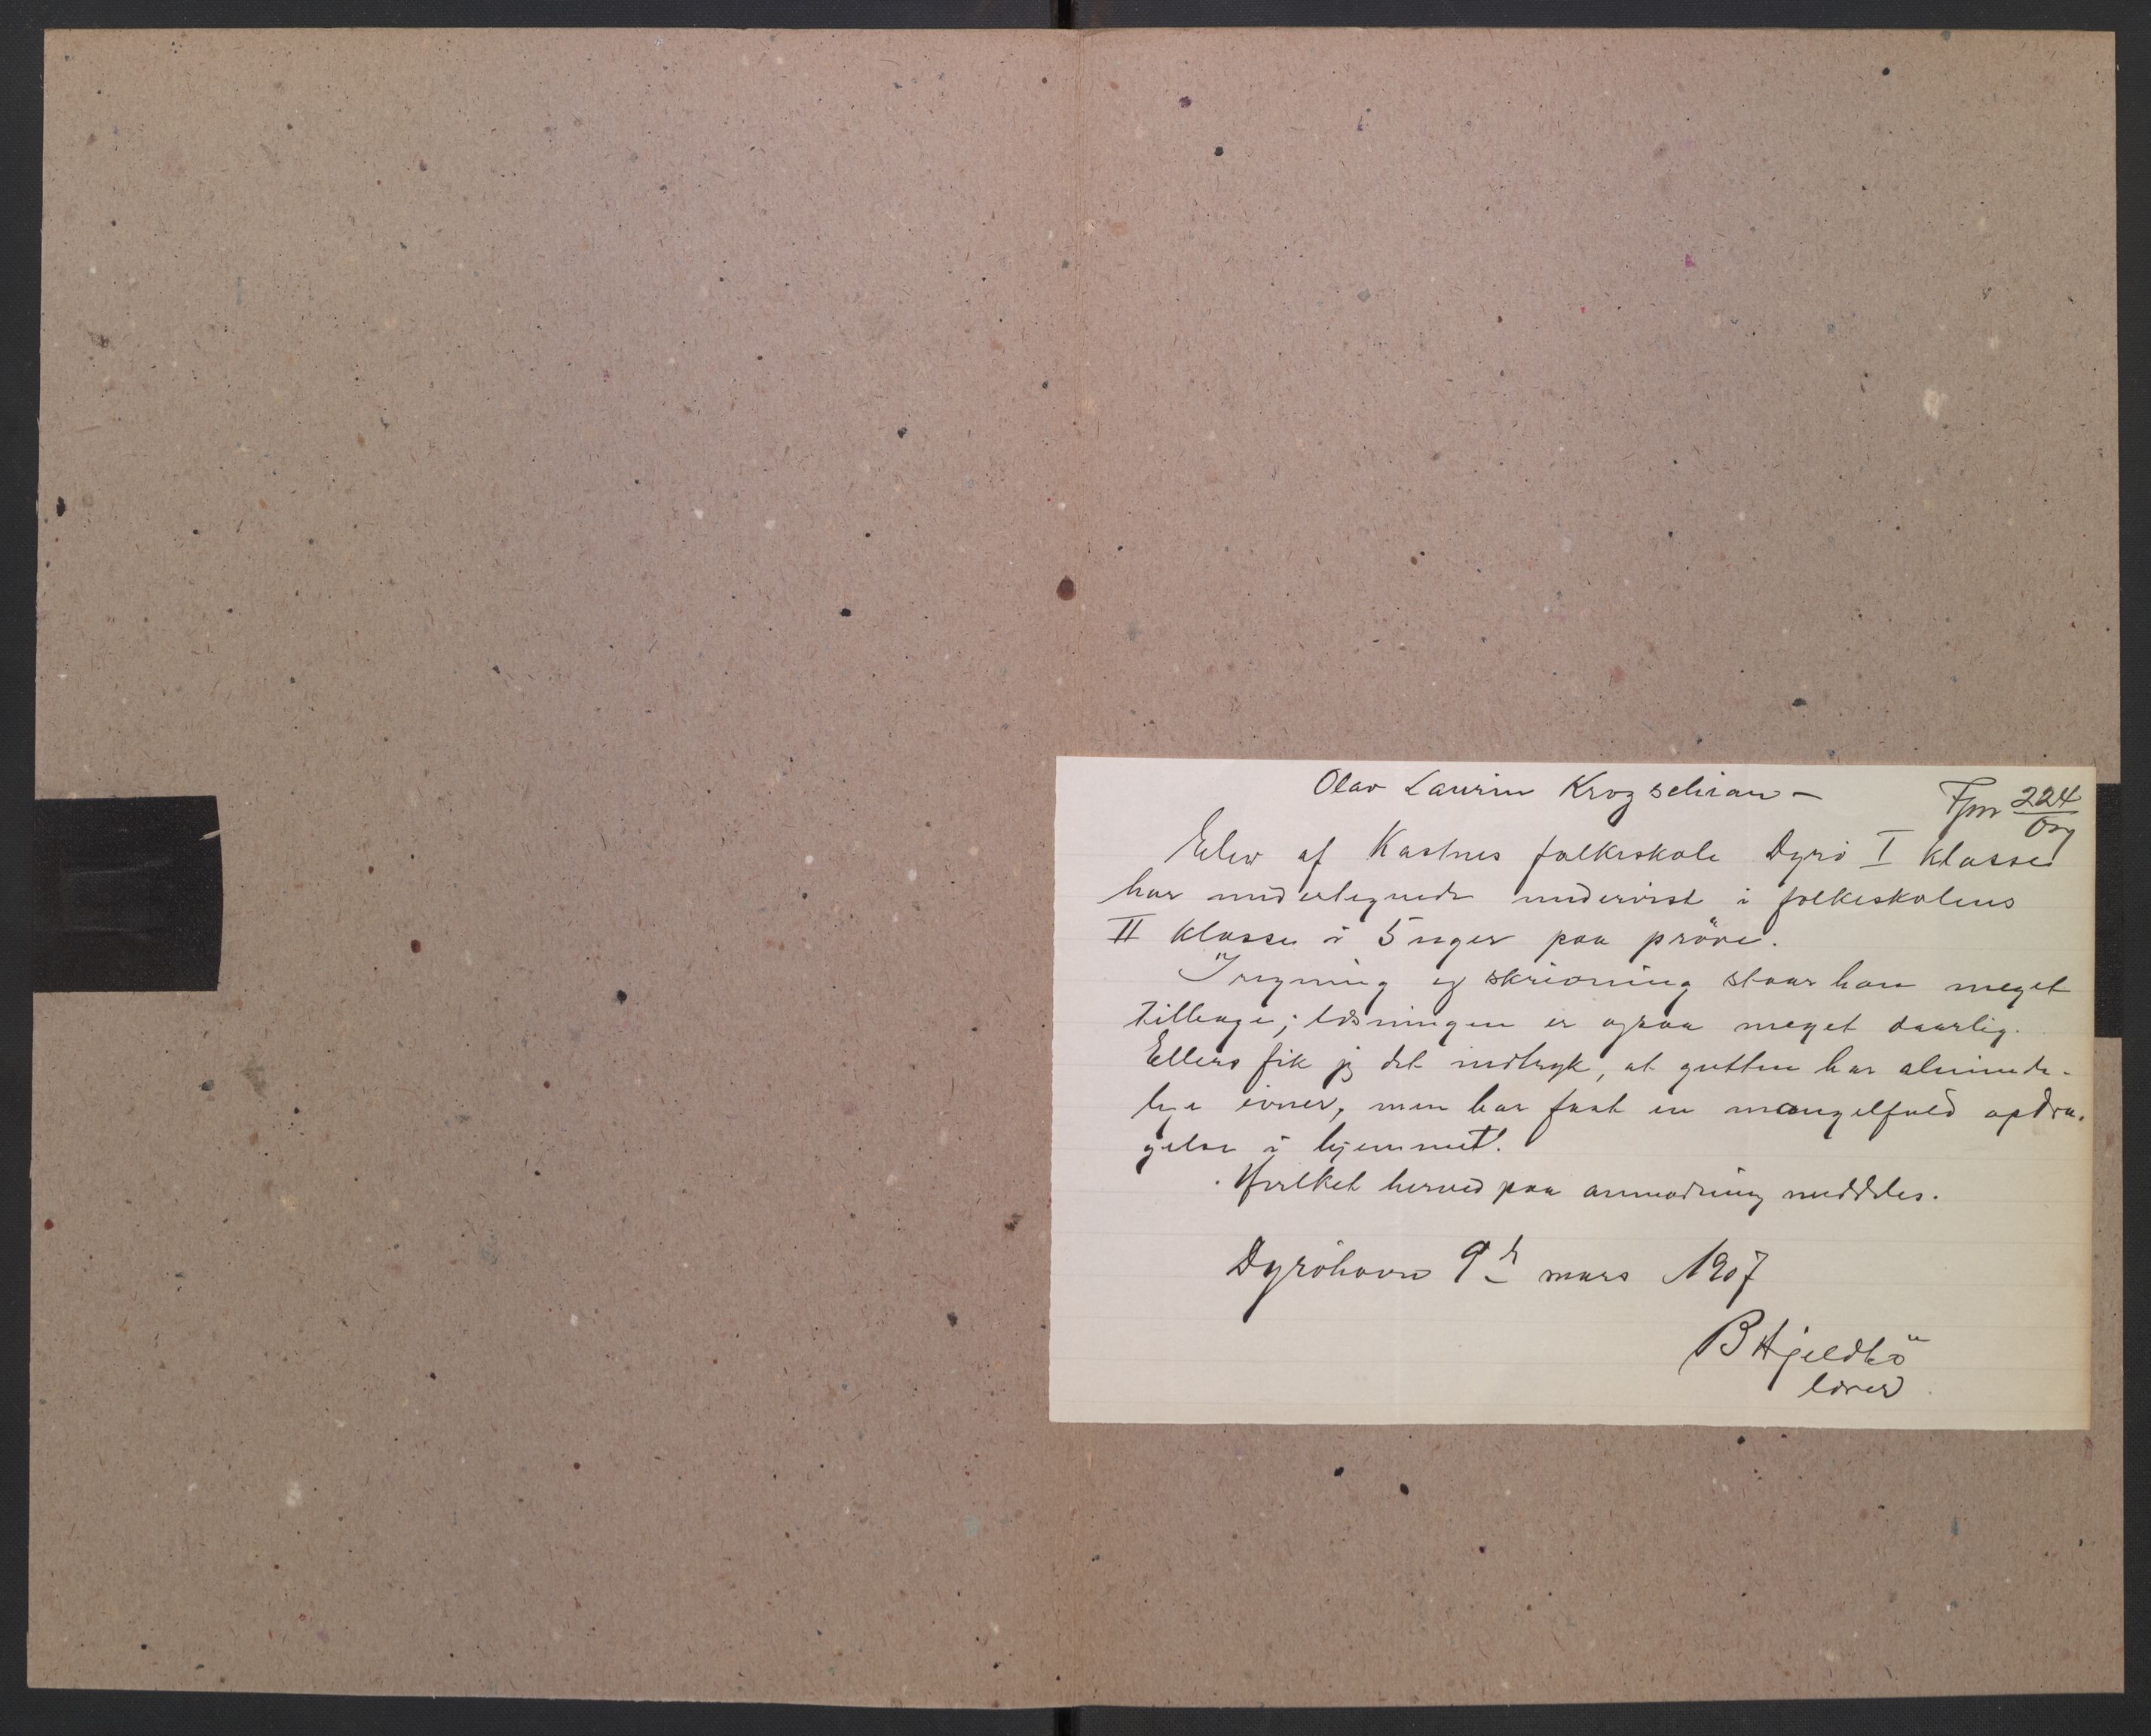 Olav Laurin Krogseliran –
Fjm 224/07
Elev af Kastnes folkeskole Dyrö I klasse
har undertegnede undervist i folkeskolens
II klasse i 5 uger paa pröve.
I regning og skrivning staar han meget
tilbage; læsningen er ogsaa meget daarlig.
Ellers fik jeg det indtryk, at gutten har alminde-
lige evner, men har faat en mangelfuld opdra-
gelse i hjemmet.
Hvilket herved paa anmodning meddeles.
Dyröhavn 9de mars 1907
B Hjeldbö
lærer